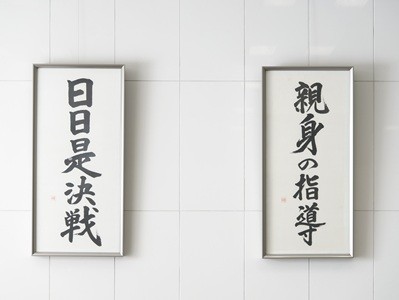 親身の指導
日日是決戦